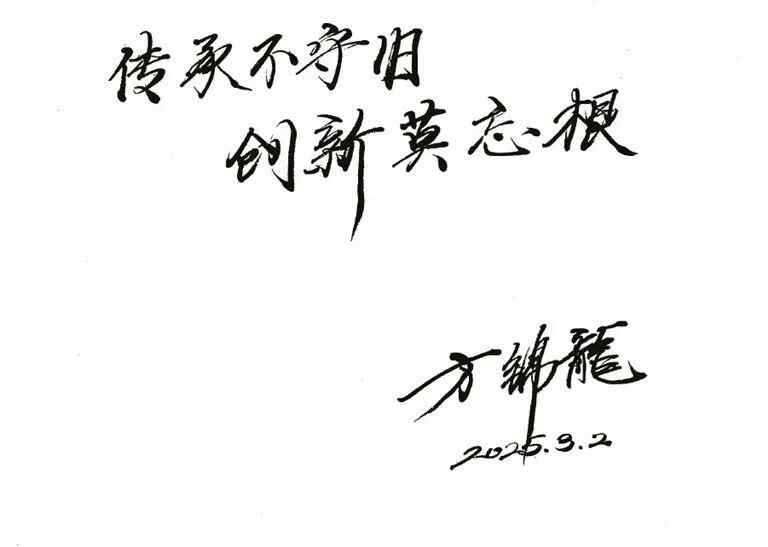 传承不守旧
创新莫忘根
方锦龍
2025.3.2